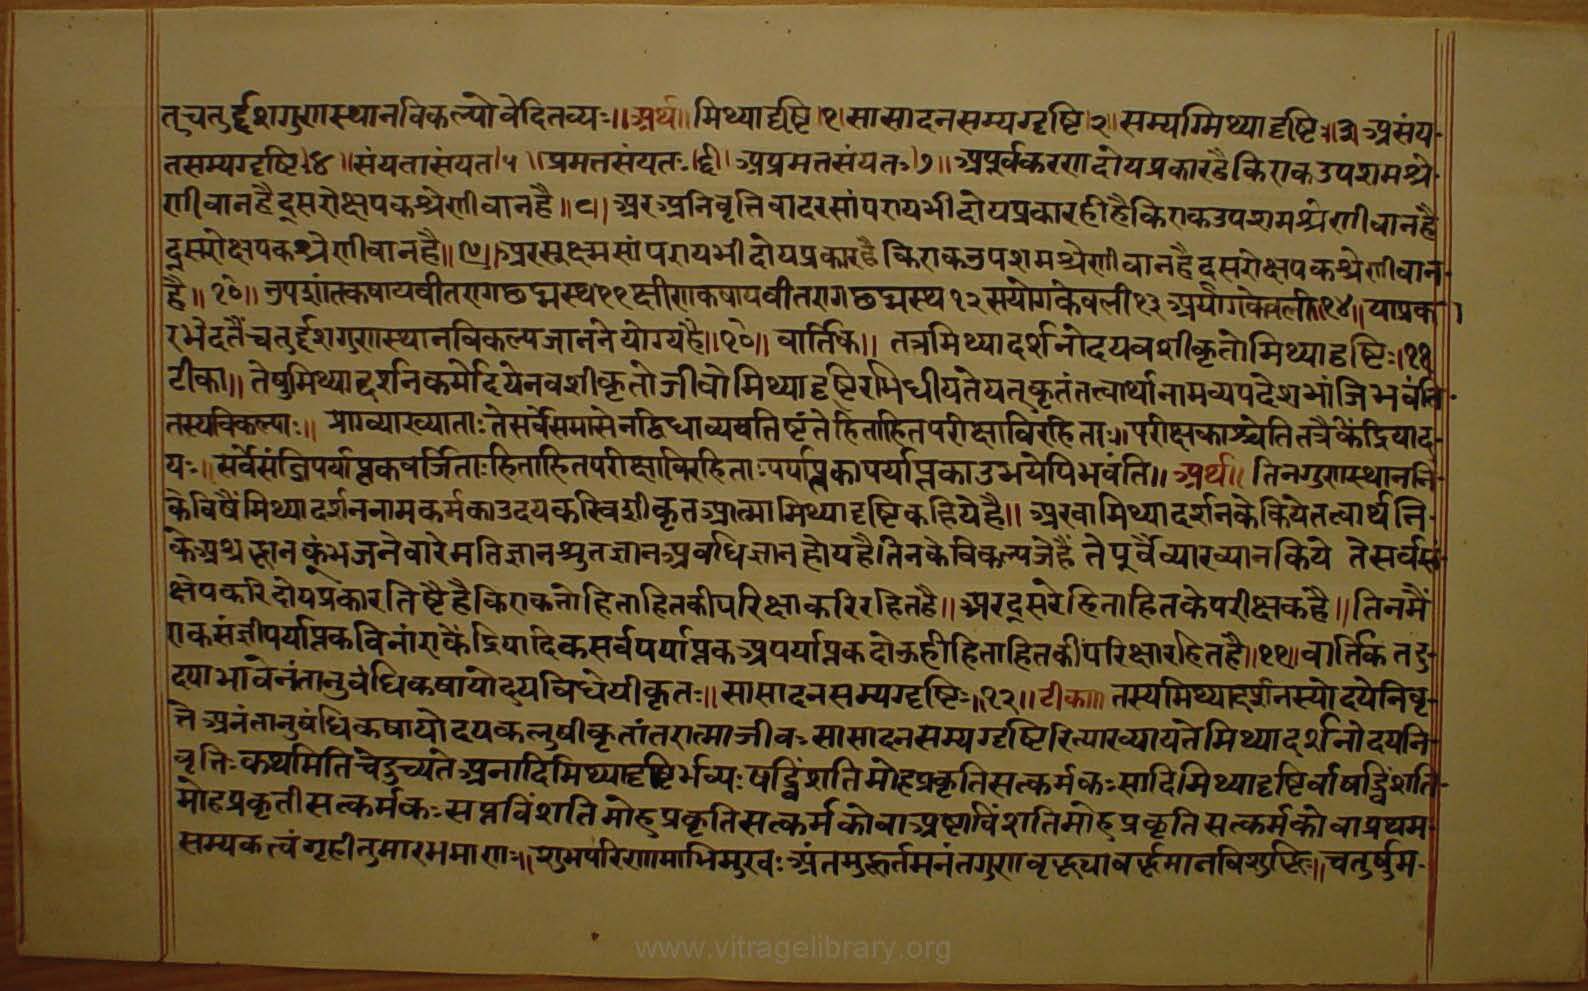 तुचतुर्द्दशगुणस्थानविकल्पोवेदितव्यः॥अर्थ॥मिथ्यादृष्टि।१।सासादनसम्यग्दृष्टि।२।सम्यग्मिथ्यादृष्टिः॥३।असंय-
तसम्यग्दृष्टि।४॥संयतासंयत।५॥प्रमत्तसंयतः।६।अप्रमतसंयतः।७॥अपूर्वकरणदोयप्रकारहैकिएकउपशमश्रे-
णीवानहैदूसरोक्षपकश्रेणीवानहै॥८।अरअनिवृत्तिवादरसांपरायभीदोयप्रकारहीहैकिएकउपशमश्रेणीवानहै
दूसरोक्षपकश्रेणीवानहै॥९॥अरसूक्ष्मसांपरायभीदोयप्रकारहैकिएकउपशमश्रेणीवानहैदूसरोक्षपकश्रेणीवान-
है॥१०॥उपशांतकषायवीतरागछद्मस्थ११क्षीणकषायवीतरागछद्मस्थ१२सयोगकेवली१३अयोगकेवली१४॥याप्रका
रभेदतैंचतुर्द्दशगुणस्थानविकल्पजाननेयोग्यहै॥१०॥वार्तिक॥तत्रमिथ्यादर्शनोदयवशीकृतोमिथ्यादृष्टिः।११
टीका॥तेषुमिथ्यादर्शनकर्मोदयेनवशीकृतोजीवोमिथ्यादृष्टिरभिधीयतेयत्कृतंतत्वार्थानामव्यपदेशभांजिभवंति-
तस्यविकल्पाः॥प्राग्व्याख्याताःतेसर्वेसमासेनद्विधाव्यवतिष्टंतेहिताहितपरीक्षाविरहिताः॥परीक्षकाश्चेतितत्रैकेंद्रियाद-
यः॥सर्वेसंज्ञिपर्याप्तकवर्जिताःहिताहितपरीक्षाविरहिताःपर्याप्तकापर्याप्तकाउभयेपिभवंति॥अर्थ॥तिनगुणस्थाननि-
केविषैंमिथ्यादर्शननामकर्मकाउदयकरिवशीकृतआत्मामिथ्यादृष्टिकहियेहै॥अरवामिथ्यादर्शनकेकियेतत्वार्थनि-
केअश्रद्धानकूंभजनेवारेमतिज्ञानश्रुतज्ञानअवधिज्ञानहोयहैतिनकेविकल्पजेहैंतेपूर्वैव्याख्यानकियेतेसर्वसं-
क्षेपकरिदोयप्रकारतिष्टैहैकिएकतोहिताहितकीपरिक्षाकरिरहितहै॥अरदूसरेहिताहितकेपरीक्षकहै॥तिनमैं
एकसंज्ञीपर्याप्तकविनांएकेंद्रियादिकसर्वपर्याप्तकअपर्याप्तकदोऊहीहिताहितकीपरिक्षारहितहै॥११॥वार्तिकतदु-
दयाभावेनंतानुबंधिकषायोदयविधेयीकृतः॥सासादनसम्यग्दृष्टिः॥१२॥टीका॥तस्यमिथ्यादर्शनस्योदयेनिवृ-
त्तेअनंतानुबंधिकषायोदयकलुषीकृतांतरात्माजीवःसासादनसम्यग्दृष्टिरित्याख्यायतेमिथ्यादर्शनोदयनि-
वृत्तिःकथमितिचेदुच्यतेअनादिमिथ्यादृष्टिर्भव्यःषड्विंशतिमोहप्रकृतिसत्कर्मकःसादिमिथ्यादृष्टिर्वाषड्विंशति-
मोहप्रकृतीसत्कर्मकःसप्तविंशतिमोहप्रकृतिसत्कर्मकोवाअष्टाविंशतिमोहप्रकृतिसत्कर्मकोवाप्रथम-
सम्यकत्वंगृहीतुमारभमाणः॥शुभपरिणामाभिमुखःअंतमुहूर्तमनंतगुणवृद्ध्यावर्द्धमानविशुद्धिः॥चतुर्षुम-
www.vitragelibrary.org